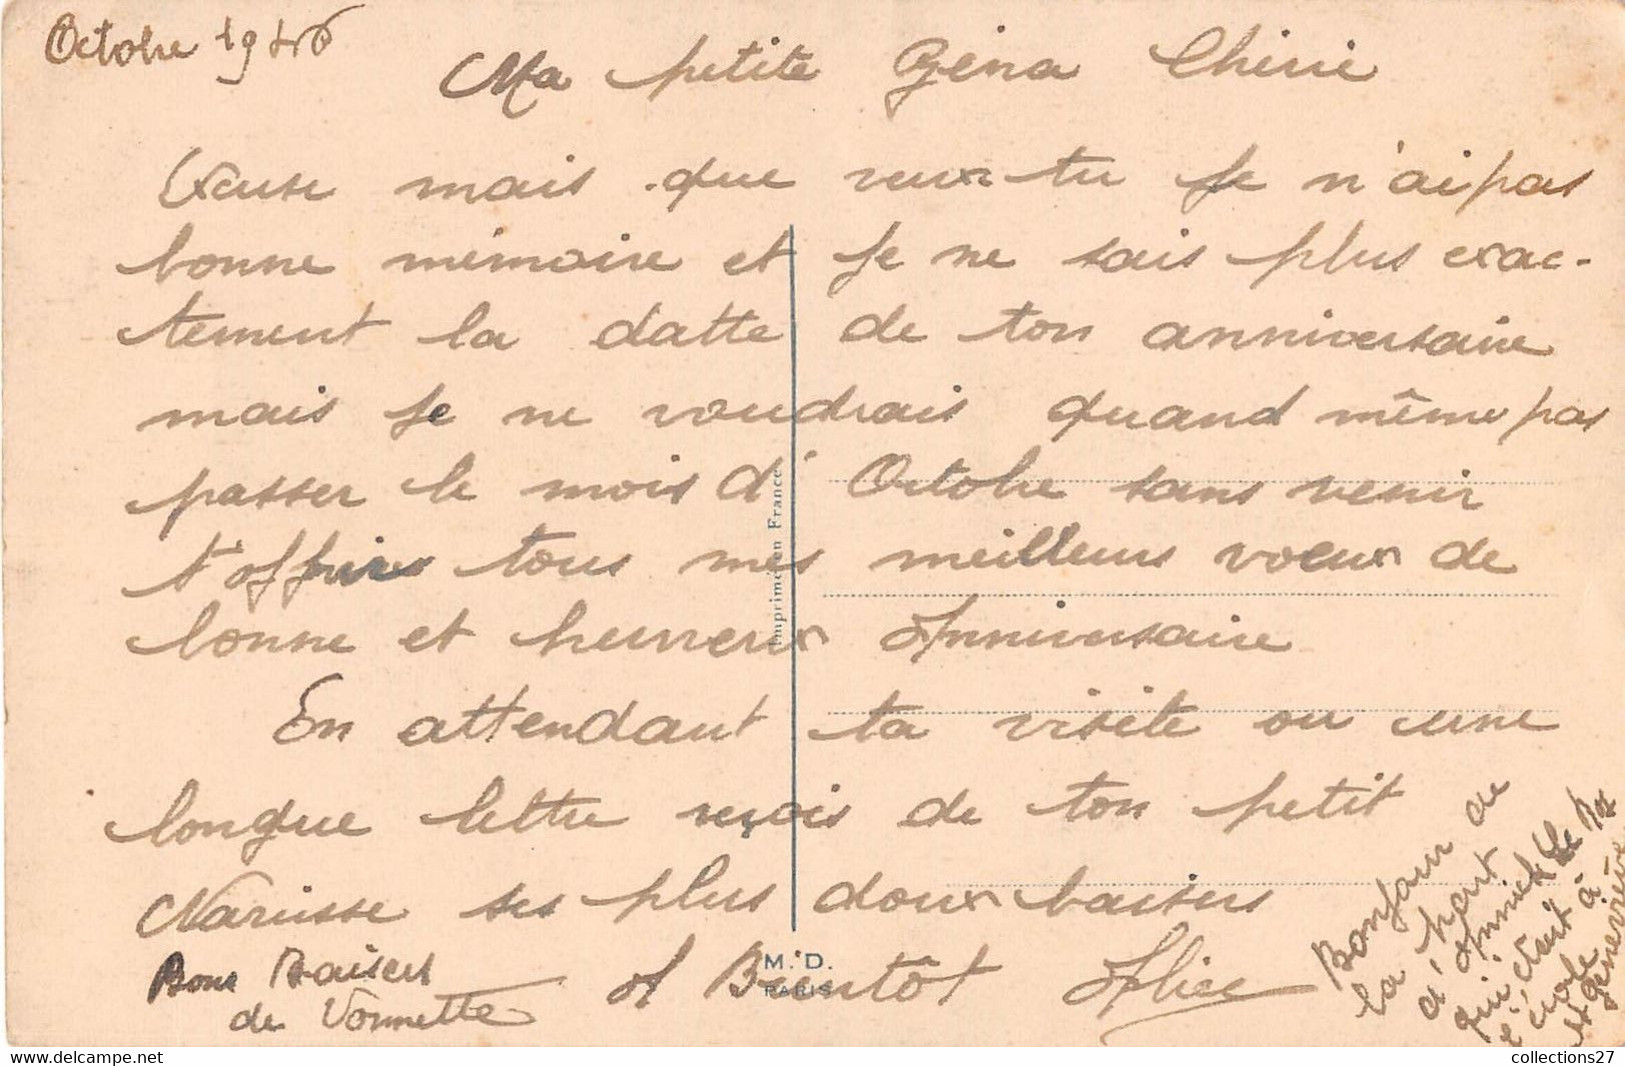 Octobre 1946
Ma petite Géna Chérie
Excuse mais que veux tu Je n'ai pas
bonne mémoire et Je ne sais plus exac-
tement la datte de ton anniversaire
mais Je ne voudrais quand même pas
passer le mois d'Octobre sans venir
t'offrir tous mes meilleurs voeux de
bonne et heureux Anniversaire
En attendant ta visite ou une
longue lettre reçois de ton petit
Narcisse ses plus doux baisers
A Bientôt Alice
Bons Baisers
de Vonnette
Bonjour de
la part
d'Annick Le
qui était à
l'école
et Geneviève
Imprimé en France
M. D.
PARIS
collections27